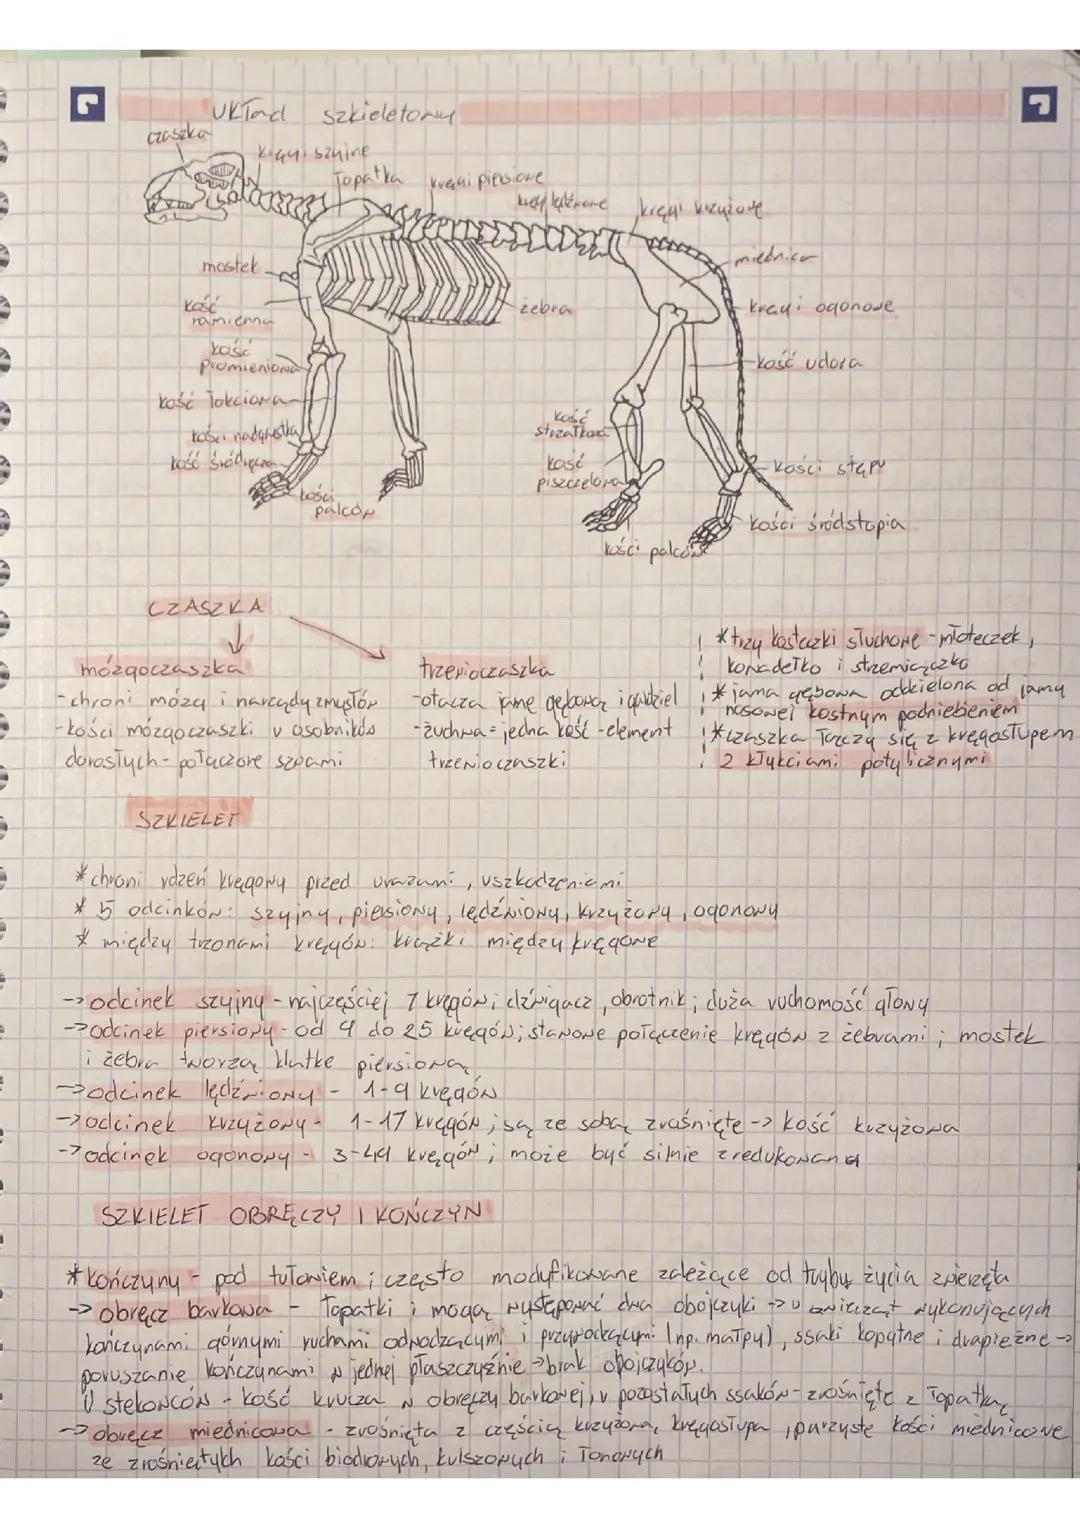 układ szkieletowy
czaszka
kręgi szyjne
łopatka
kręgi piersiowe
kręgi lędźwiowe
kręgi krzyżowe
mostek
miednica
kość ramienna
żebra
kręgi ogonowe
kość promieniowa
kość udowa
kość łokciowa
kość strzałkowa
kości nadgarstka
kość śródręcza
kość piszczelowa
kości stępu
kości palców
kości śródstopia
kości palców
CZASZKA
mózgoczaszka
- chroni mózg i narządy zmysłów
- kości mózgoczaszki u osobników
dorosłych - połączone szwami
trzewioczaszka
- otacza jamę gębową i gardziel
- żuchwa = jedna kość - element
trzewioczaszki
* trzy kosteczki słuchowe - młoteczek,
kowadełko i strzemiączko
* jama gębowa oddzielona od jamy
nosowej kostnym podniebieniem
* czaszka łączy się z kręgosłupem
2 kłykciami potylicznymi
SZKIELET
* chroni rdzeń kręgowy przed urazami, uszkodzeniami
* 5 odcinków: szyjny, piersiowy, lędźwiowy, krzyżowy, ogonowy
* między trzonami kręgów: krążki międzykręgowe
-> odcinek szyjny - najczęściej 7 kręgów; dźwigacz, obrotnik; duża ruchomość głowy
-> odcinek piersiowy - od 9 do 25 kręgów; stawowe połączenie kręgów z żebrami; mostek
i żebra tworzą klatkę piersiową
-> odcinek lędźwiowy - 1-9 kręgów
-> odcinek krzyżowy - 1-17 kręgów; są ze sobą zrośnięte -> kość krzyżowa
-> odcinek ogonowy - 3-49 kręgów; może być silnie zredukowany
SZKIELET OBRĘCZY I KOŃCZYN
* kończyny - pod tułowiem; często modyfikowane zależące od trybu życia zwierzęta
-> obręcz barkowa - łopatki i mogą występować dwa obojczyki -> u zwierząt wykonujących
kończynami górnymi ruchami odwodzącymi i przywodzącymi (np. małpy), ssaki kopytne i drapieżne ->
poruszanie kończynami w jednej płaszczyźnie -> brak obojczyków.
U stekowców - kość krucza w obręczy barkowej, u pozostałych ssaków - zrośnięte z łopatką
-> obręcz miednicowa - zrośnięta z częścią krzyżową kręgosłupa, parzyste kości miednicowe
ze zrośniętych kości biodrowych, kulszowych i łonowych